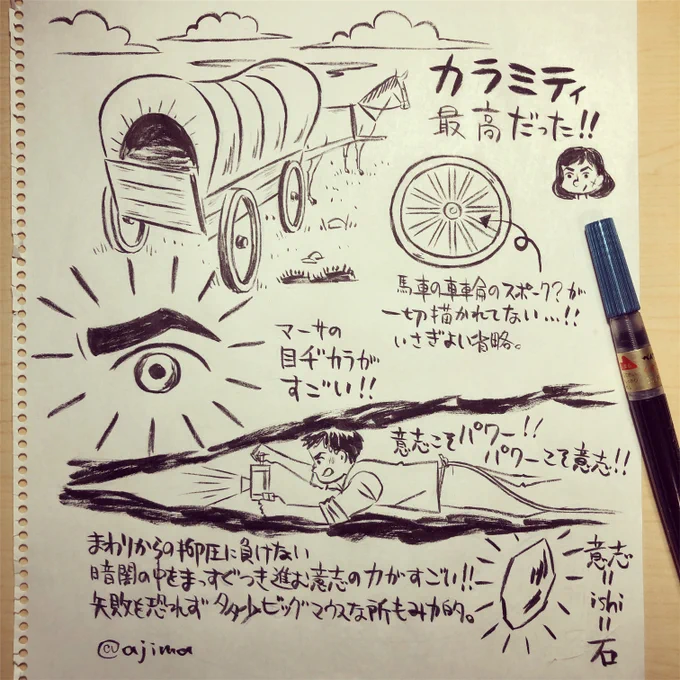 カラミティ
最高だった!!
馬車の車輪のスポーク?が
一切描かれてない…!!
いさぎよい省略。
マーサの
目ヂカラが
すごい!!
意志こそパワー!!
パワーこそ意志!!
まわりからの抑圧に負けない
暗闇の中をまっすぐつき進む意志の力がすごい!!
失敗を恐れず多少ビッグマウスな所もみ力的。
意志
=
ishi
=
石
@ajima